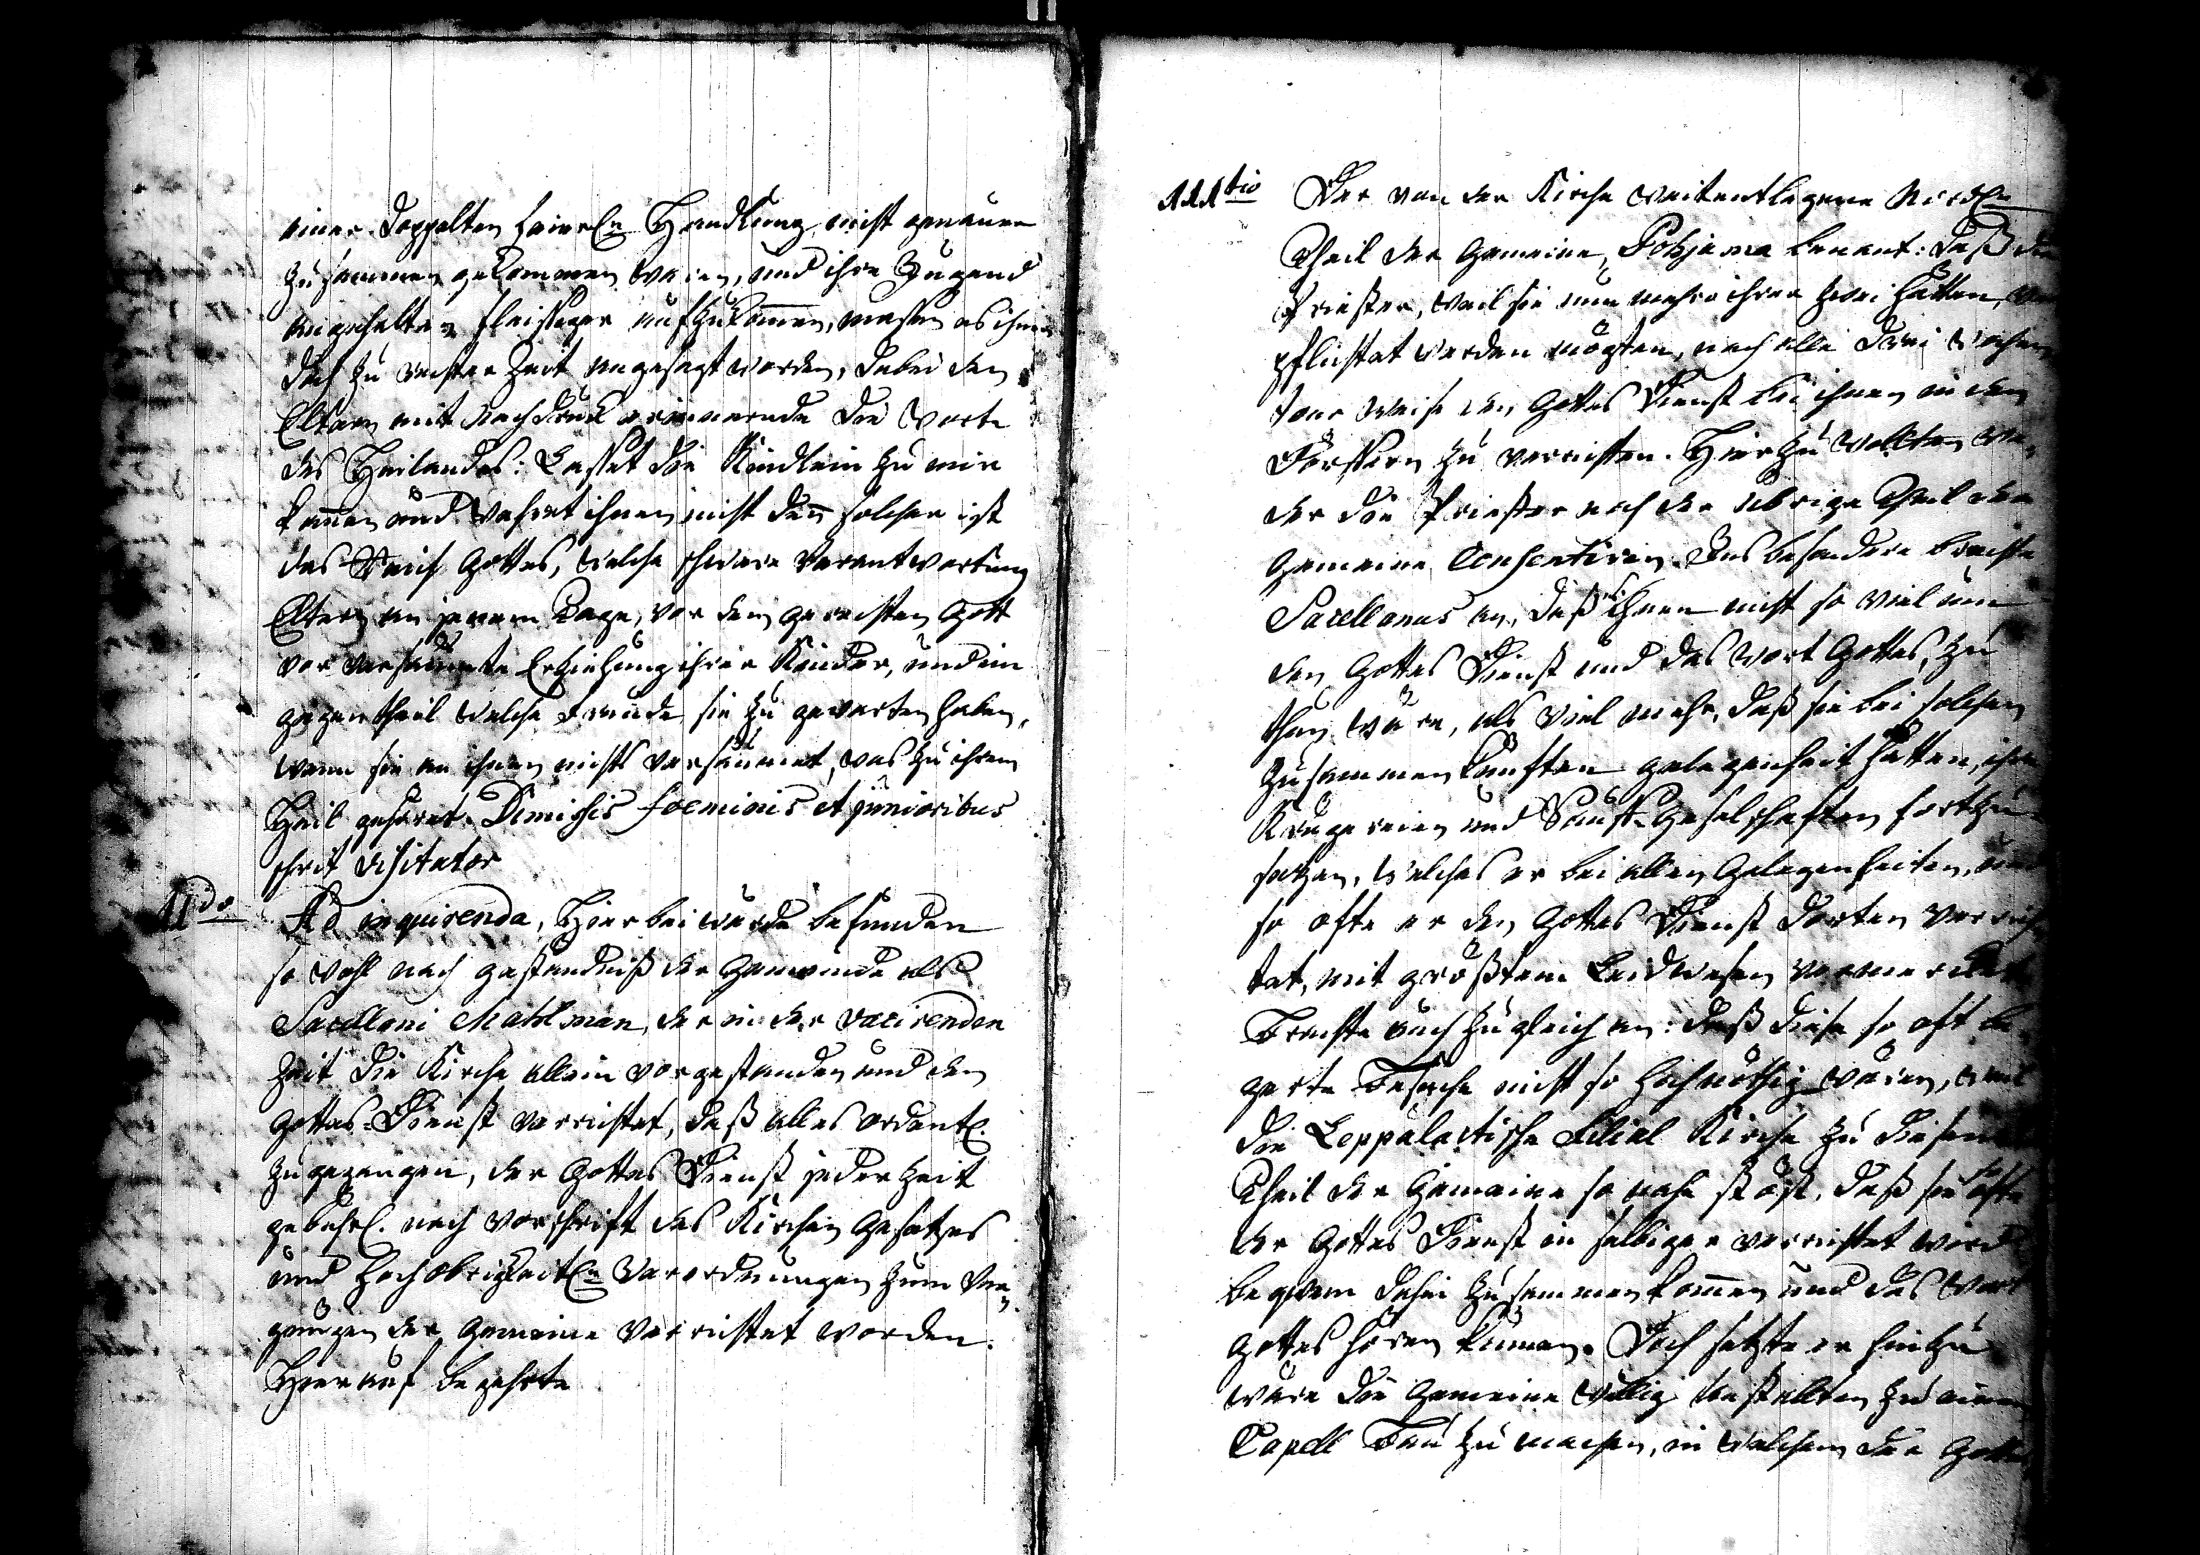 einer doppelten feierl. Handlung nicht genauer
zusammen gekommen wären, und ihre Jugend
angehalten fleißiger aufzukommen, es ihnen
doch zu rechter Zeit angesagt worden, dabei den
Eltern mit Nachdruck erinnernde die Worte
des Heilandes: Lasset die Kindlein zu mir
kommen und wehret ihnen nicht denn solcher ist
das Reich Gottes, welche schwere Verantwortung
Eltern an jenem Tage, vor dem gerechten Gott
vor versäumte Erziehung ihrer Kinder, und im
gegentheil welche Freude sie zu gewarten haben,
wenn sie an ihnen nichts versäumet, was zu ihrem
Heil gehöret. Dimissis foeminis et junioribus
schrit Visitator
IIdo Ad inquirenda, Hier bei wurde befunden
so wohl nach geständniß der Gemeinde als
Sacellani Mahlman, der in der vacirenden
Zeit die Kirche allein vorgestanden und den
Gottes-Dienst verrichtet, daß alles ordentl.
zugegangen, der Gottes Dienst jederzeit
gebührl. nach Vorschrift des Kirchen Gesetzes
und Hochobrigkeitl. Verordnungen zum Ver-
gnügen der Gemeine verrichtet worden.
Hierauf begehrte
IIItio Der von der Kirche weitentlegene
Theil der Gemeine, Pohjama benant: daß die
Priester, weil sie nun mehro ihrer zwei hätten, ver
pflichtet werden mögten, nach alle drei Wochen
den Gottes Dienst bei ihnen in den
Dörffern zu verrichten. Hierzu wollten we-
der die Priester noch der übrige Theil der
Gemeine Consentiren. Insbesondere brachte
Sacellanus an, daß ihnen nicht so viel um
den Gottes Dienst und das Wort Gottes, zu
thun wäre, als viel mehr, daß sie bei solchen
Zusammenkünften gelegenheit hätten, ihre
Krügereien und Sauff-Geselschafften fortzu-
setzen, welches er bei allen Gelegenheiten, und
so offte er den Gottes Dienst dorten verrich
tet, mit größtem Leidwesen vermercket
Brachte auch zugleich an: daß diese so oft be
gerte Besuche nicht so hochnöthig wären, weil
die Leppalactische Filial Kirche zu diesem
Theil der Gemeine so nahe stöst, daß sie so offte
der Gottes Dienst in selbiger verrichtet wird
beqvem dahin zusammen kommen und das Wort
Gottes hören können. Doch setzte er hinzu
wäre die Gemeine willig Anstalten zu einem
Capell Bau zu machen, in welchem der Gottes